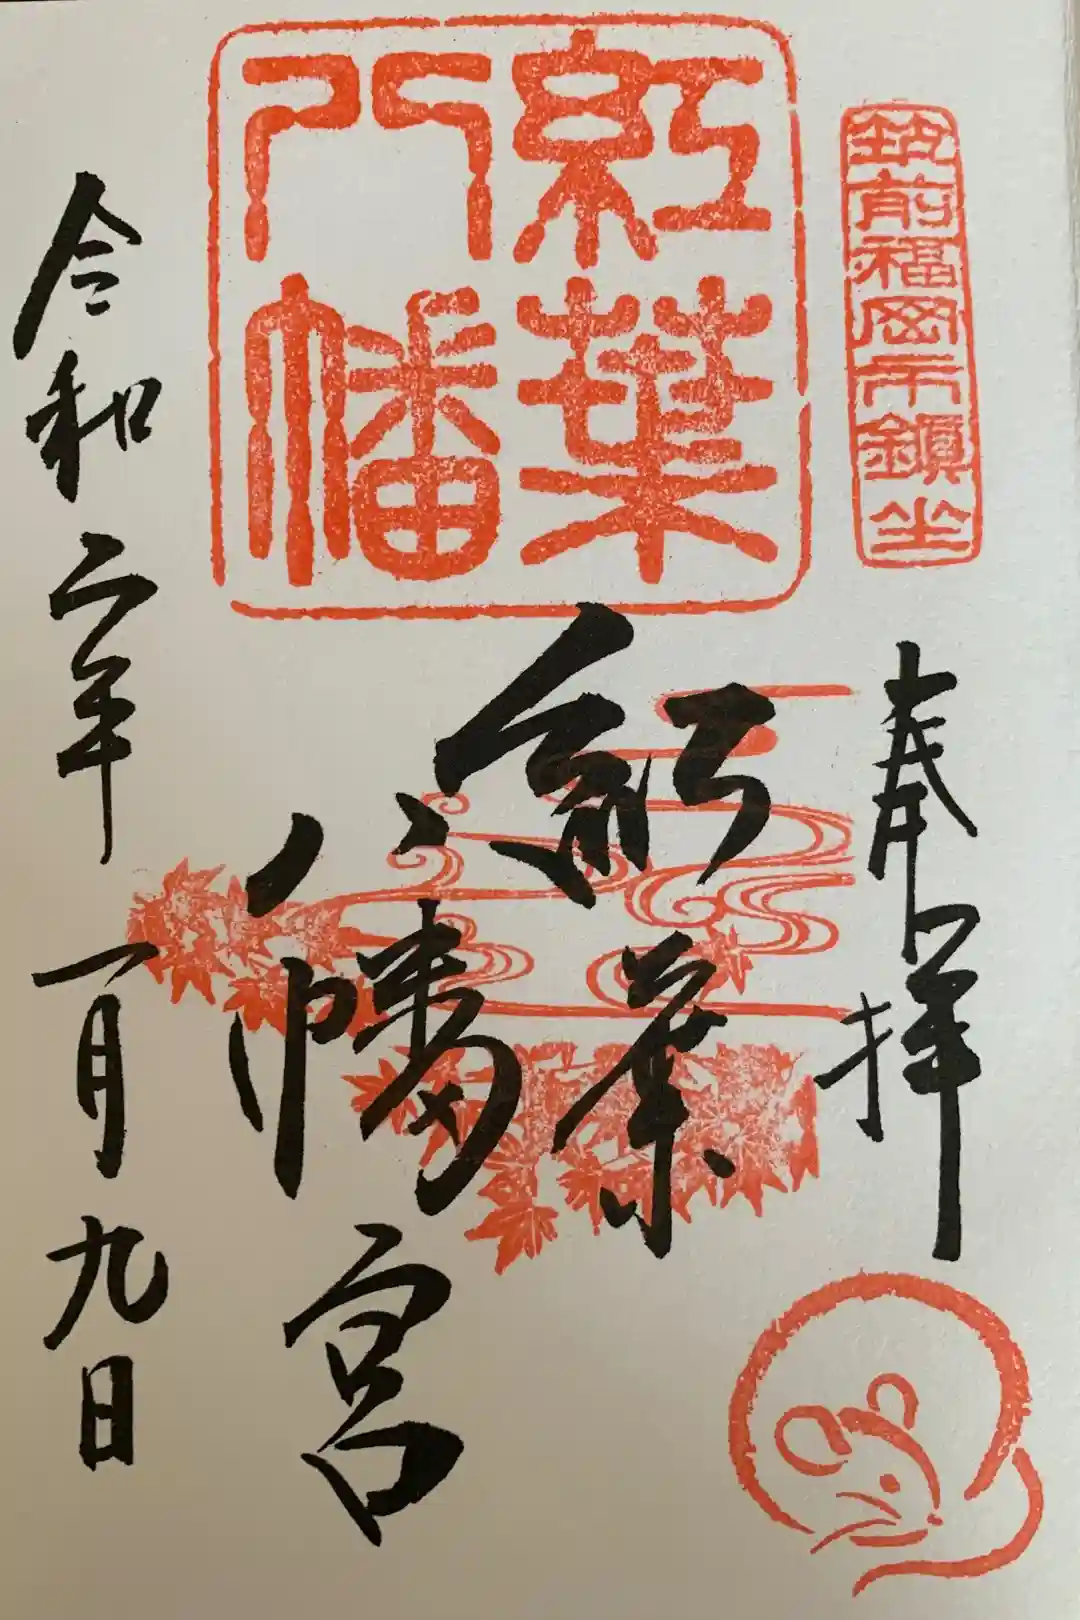 筑前福岡市鎮坐
奉拝
紅葉
八幡
紅葉
八幡宮
令和二年一月九日